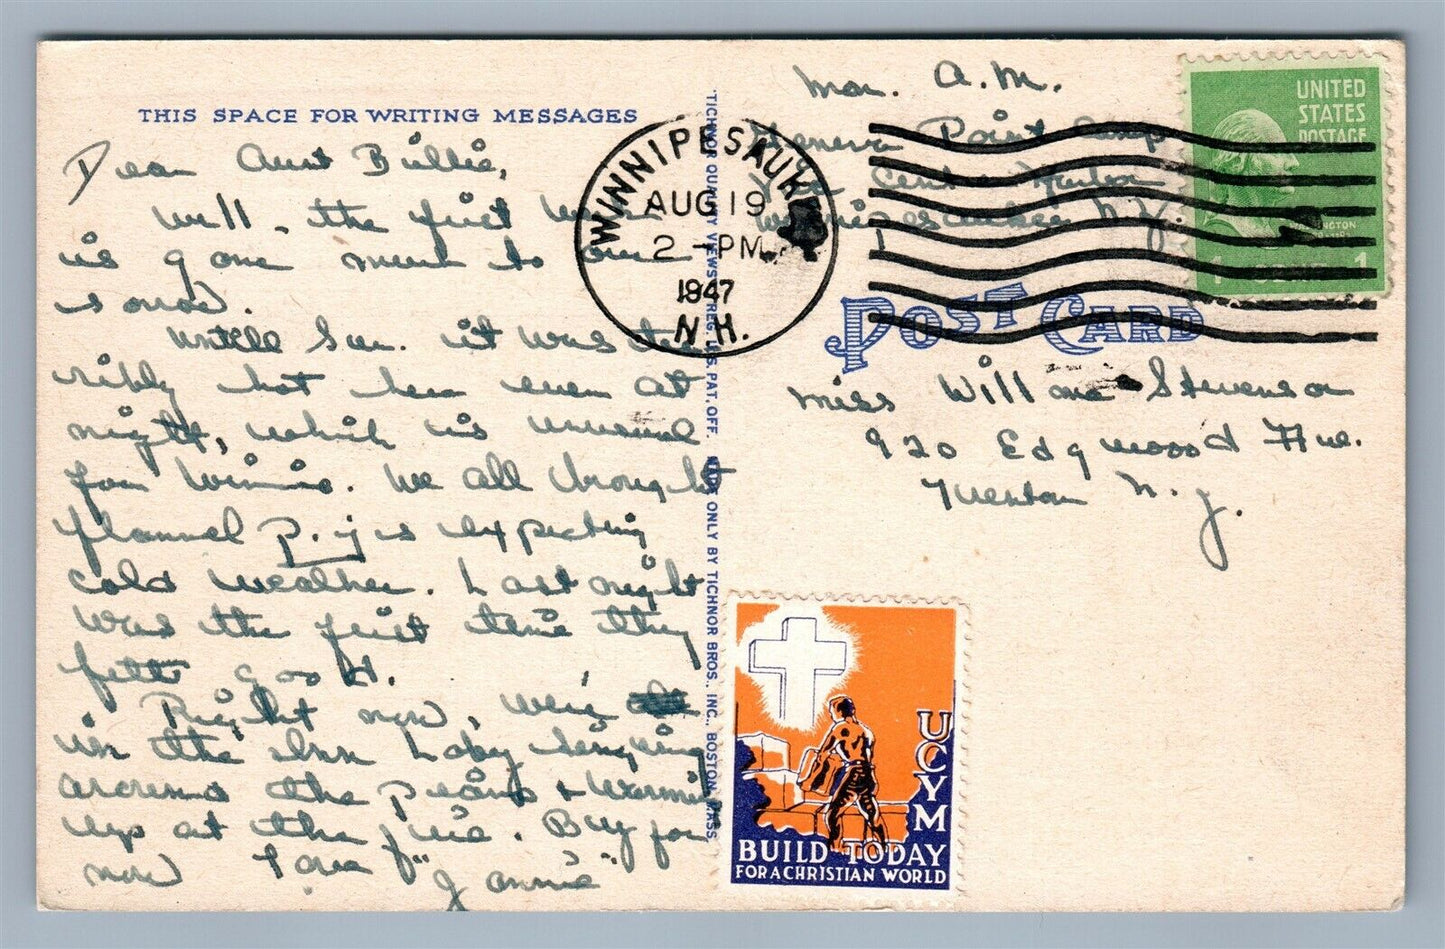 THIS SPACE FOR WRITING MESSAGES
Dear Aunt Billie,
Well, the first week
is gone much to our
sorrow.
Untill Sun. it was ter
ribly hot here even at
night, which is unusual
for Winnie. We all brought
flannel p.js expecting
cold weather. Last night
was the first time they
felt good.
Right now, we're
in the Inn Lobby singing
around the piano & warming
up at the fire. Bye for
now Love
"Jannie"
TICHNOR QUALITY VIEWS REG. U.S. PAT. OFF. MADE ONLY BY TICHNOR BROS., INC., BOSTON, MASS.
Mon. A.M.
Geneva Point Camp
Center Harbor
Winnipesaukee N.H.
WINNIPESAUKEE
AUG 19
2 - PM
1947
N.H.
UNITED
STATES
POSTAGE
WASHINGTON
1 CENT 1
POST CARD
Miss Willona Stevenson
920 Edgewood Ave.
Trenton N.J.
UCYM
BUILD TODAY
FOR A CHRISTIAN WORLD